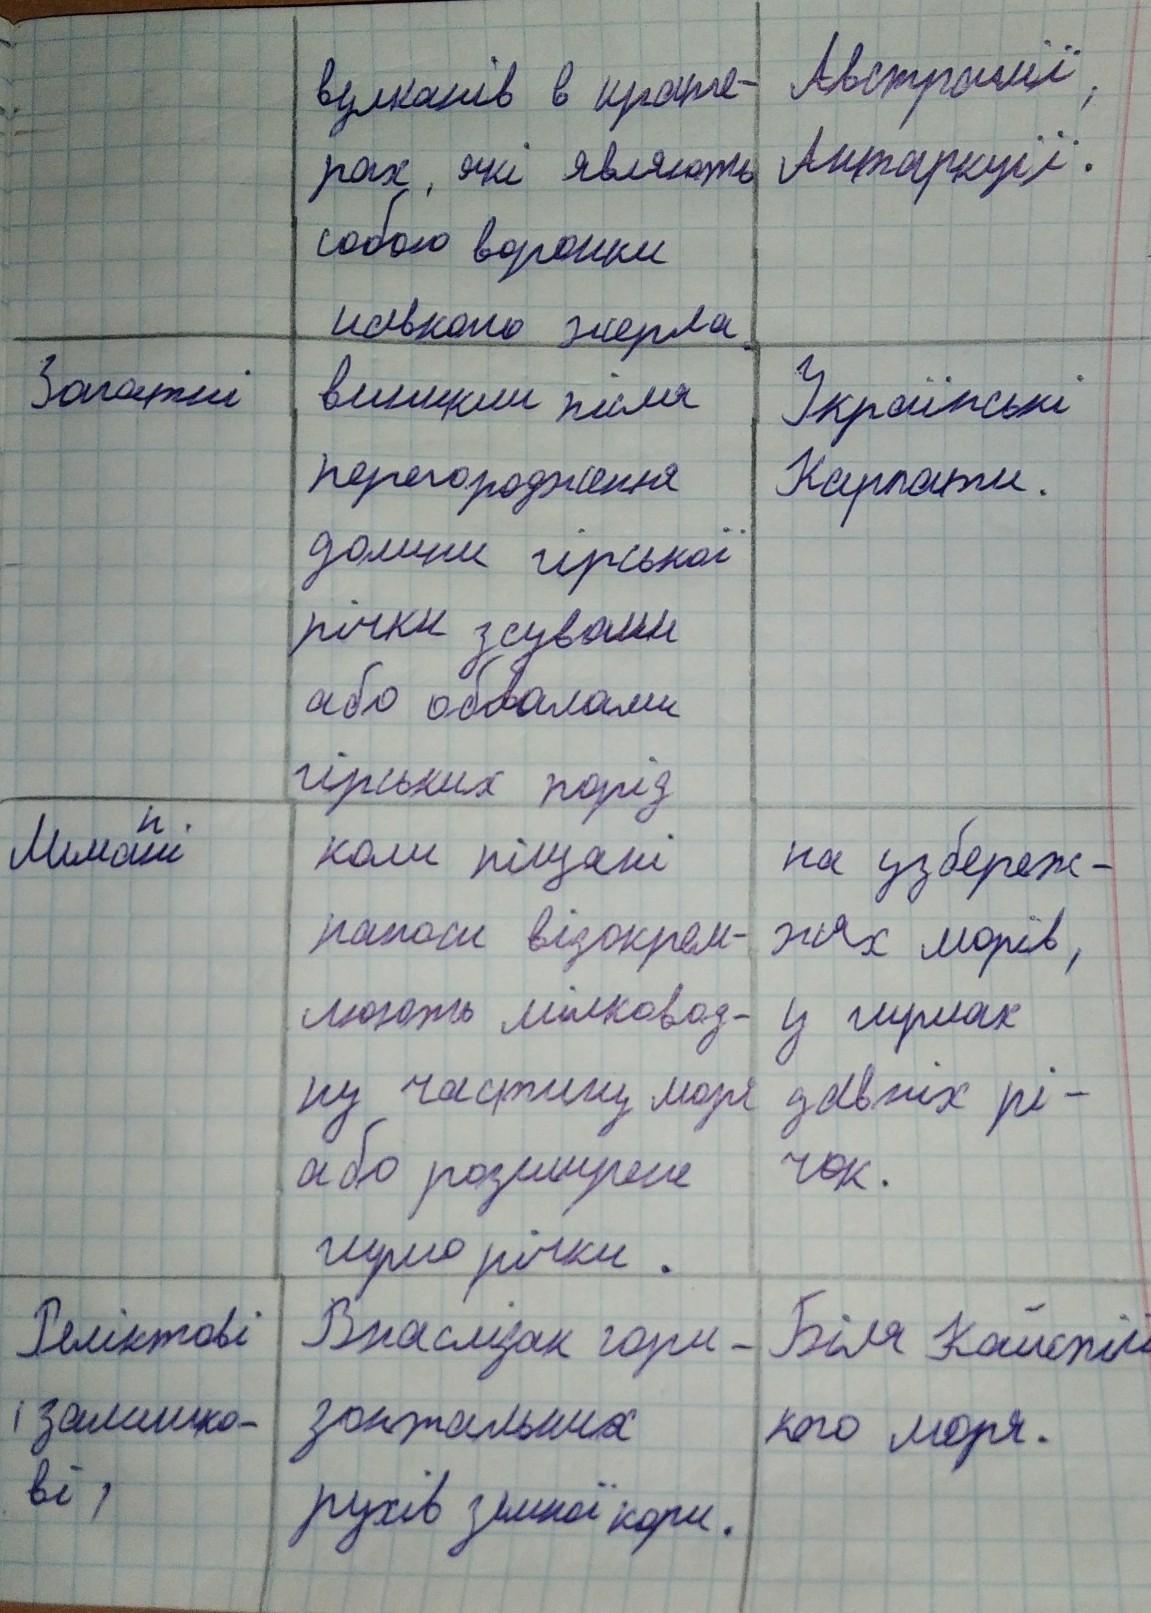 вулканів в крате-
рах, які являють
собою воронки
навколо жерла.
Австралії,
Антаркції.
Загатні
виникли після
перегородження
долини гірської
річки зсувами
або обвалами
гірських порід
Українські
Карпати.
Лимані
н.
коли піщані
наноси відокрем-
люють мілковод-
ну частину моря
або розширене
гирло річки.
на узбереж-
жях морів,
у гирлах
давніх рі-
чок.
Реліктові
(залишко-
ві)
Внаслідок гори-
зонтальних
рухів земної кори.
Біля Кайспій
кого моря.